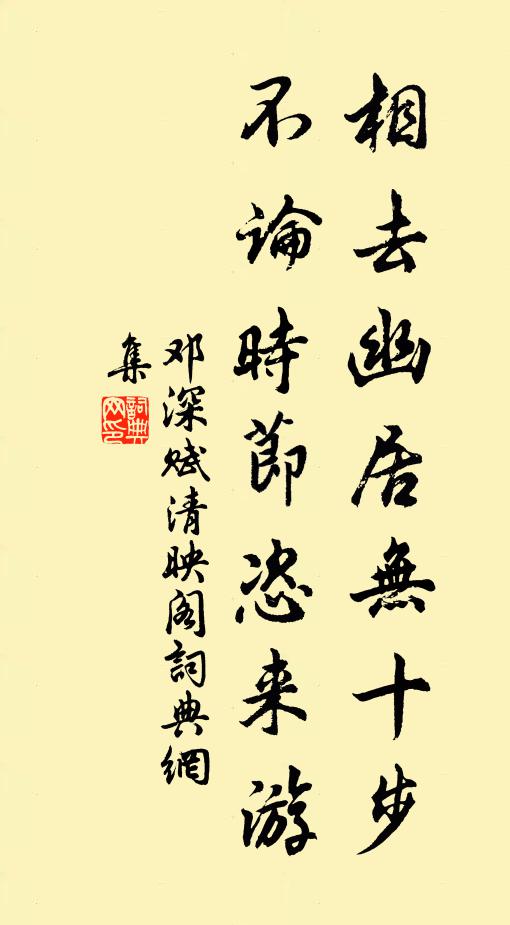 相去幽居無十步
不論時節恣来游
邓深赋清映阁詞典網
集
詞典網印